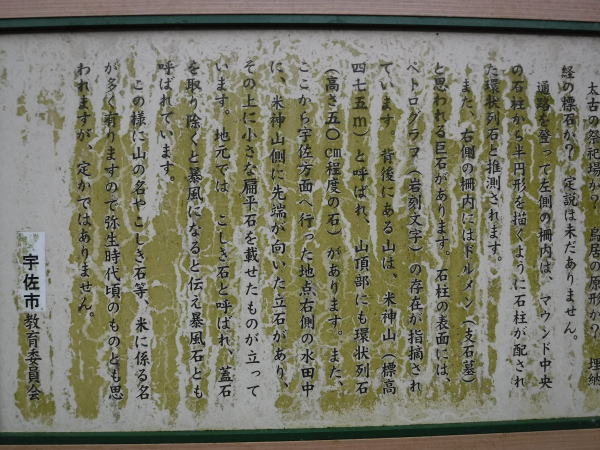 太古の祭祀場か？　鳥居の原形か？　埋納
経の標石か？　定説は未だありません。
　通路を登って左側の柵内は、マウンド中央
の石柱から半円形を描くように石柱が配され
た環状列石と推測されます。
　また、右側の柵内にはドルメン（支石墓）
と思われる巨石があります。石柱の表面には、
ペトログラフ（岩刻文字）の存在が指摘され
ています。背後にある山は、米神山（標高
四七五ｍ）と呼ばれ、山頂部にも環状列石
（高さ五〇㎝程度の石）があります。また、
ここから宇佐方面へ行った地点右側の水田中
に、米神山側に先端が向いた立石があり、
その上に小さな扁平石を載せたものが立って
います。地元では、こしき石と呼ばれ、蓋石
を取り除くと暴風になると伝え暴風石とも
呼ばれています。
　この様に山の名やこしき石等、米に係る名
が多く有りますので弥生時代頃のものとも思
われますが、定かではありません。
宇佐市教育委員会